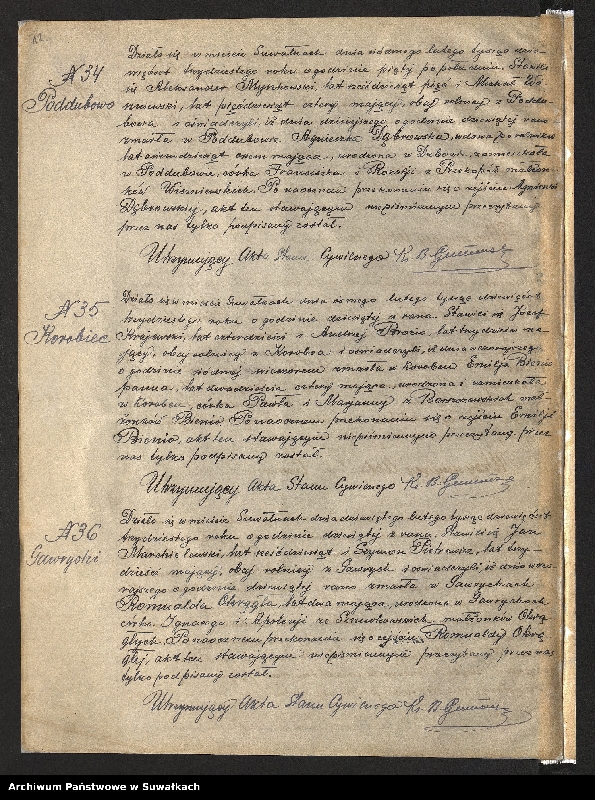 12.
N 34
Poddubowo
Działo się w mieście Suwałkach dnia siódmego lutego tysiąc dzie-
więćset trzydziestego roku o godzinie piątej po południu. Stawili
się Aleksander lat sześćdziąt pięć i Michał
lat pięćdziesiąt cztery mający, obaj rolnicy z Poddu-
bowa i oświadczyli, iż dnia dzisiejszego o godzinie dziesiątej rano
zmarła w Poddubowie Agnieszka Dąbrowska, wdowa po rolniku
lat osiemdziesiąt osiem mająca, urodzona w zamieszkała
w Poddubowie, córka Franciszka i Rozalji z małżon-
ków Wiśniewskich. Po naocznem przekonaniu się o zejściu Agnieszki
Dąbrowskiej, akt ten stawającym niepiśmiennym przeczytany
przez nas tylko podpisany został.
Utrzymujący Akta Stanu Cywilnego Ks. B.
N 35
Korobiec
Działo się w mieście Suwałkach dnia ósmego lutego tysiąc dziewięćset
trzydziestego roku o godzinie dziesiątej z rana. Stawili się Józef
Krajewski, lat czterdzieści i Andrzej lat trzydzieści ma-
jący, obaj rolnicy z Korobca i oświadczyli, iż dnia wczorajszego
o godzinie siódmej wieczorem zmarła w Korobcu Emilja Bienio
panna, lat dwadzieścia cztery mająca, urodzona i zamieszkała
w Korobcu córka Pawła i Marjanny z mał-
żonków Bienio. Po naocznem przekonaniu się o zejściu Emilji
Bienio, akt ten stawającym niepiśmiennym przeczytany przez
nas tylko podpisany został.
Utrzymujący Akta Stanu Cywilnego Ks. B.
N 36
Gawrychi
Działo się w mieście Suwałkach dnia dziewiątego lutego tysiąc dziewięćset
trzydziestego roku o godzinie dziesiątej z rana. Stawili się Jan
lat sześćdziesiąt i Szymon Pietrewicz, lat trzy-
dzieści mający, obaj rolnicy z Gawrych i oświadczyli, iż dnia wczo-
rajszego o godzinie dziewiątej rano zmarła w Gawrychach
Romualda Okrągła, lat dwa mająca, urodzona w Gawrychach
córka Ignacego i Apolonji ze małżonków Okrą-
głych. Po naocznem przekonaniu się o zejściu Romualdy Okrą-
głej, akt ten stawającym niepiśmiennym przeczytany przez nas
tylko podpisany został.
Utrzymujący Akta Stanu Cywilnego Ks. B.
Archiwum Państwowe w Suwałkach